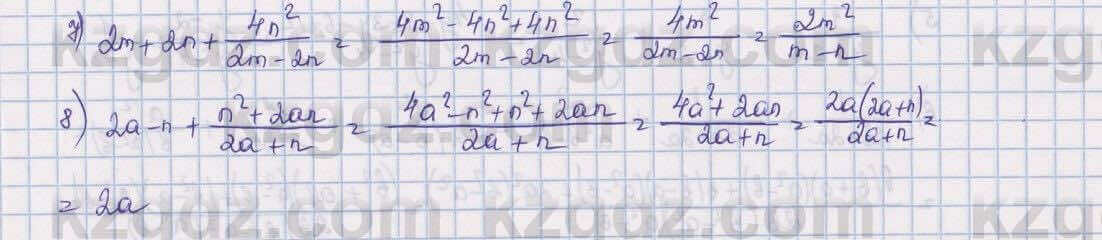 7) 2m + 2n + 4n²/(2m - 2n) = (4m² - 4n² + 4n²)/(2m - 2n) = 4m²/(2m - 2n) = 2m²/(m - n)
8) 2a - n + (n² + 2an)/(2a + n) = (4a² - n² + n² + 2an)/(2a + n) = (4a² + 2an)/(2a + n) = 2a(2a + n)/(2a + n) =
= 2a